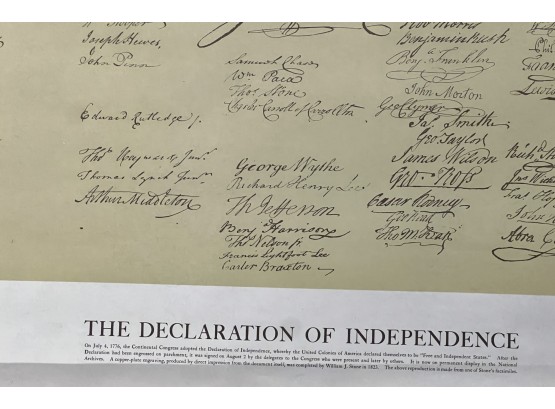 Joseph Hewes,
John Penn
Edward Rutledge /.
Tho⁠s Heyward Junr.
Thomas Lynch Junr.
Arthur Middleton
Samuel Chase
Wm. Paca
Thos. Stone
Charles Carroll of Carrollton
George Wythe
Richard Henry Lee
Th Jefferson
Benj Harrison
Thos Nelson jr.
Francis Lightfoot Lee
Carter Braxton
Robt Morris
Benjamin Rush
Benj. Franklin
John Morton
Geo Clymer
Jas. Smith
Geo. Taylor
James Wilson
Geo. Ross
Caesar Rodney
Geo Read
Tho M:Kean
Phil
Lewis
Richd. Sto
Jno Wi
Fras. Hop
John
Abra C
THE DECLARATION OF INDEPENDENCE
On July 4, 1776, the Continental Congress adopted the Declaration of Independence, whereby the United Colonies of America declared themselves to be "Free and Independent States." After the
Declaration had been engrossed on parchment, it was signed on August 2 by the delegates to the Congress who were present and later by others. It is now on permanent display in the National
Archives. A copper-plate engraving, produced by direct impression from the document itself, was completed by William J. Stone in 1823. The above reproduction is made from one of Stone's facsimiles.